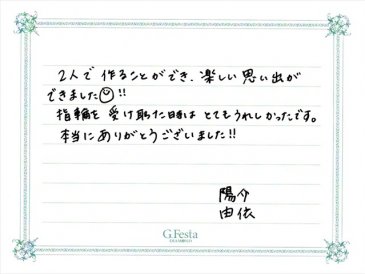 2人で作ることができ、楽しい思い出が
できました☺!!
指輪を受け取た時は とてもうれしかったです。
本当にありがとうございました!!
陽介
由依
G.Festa